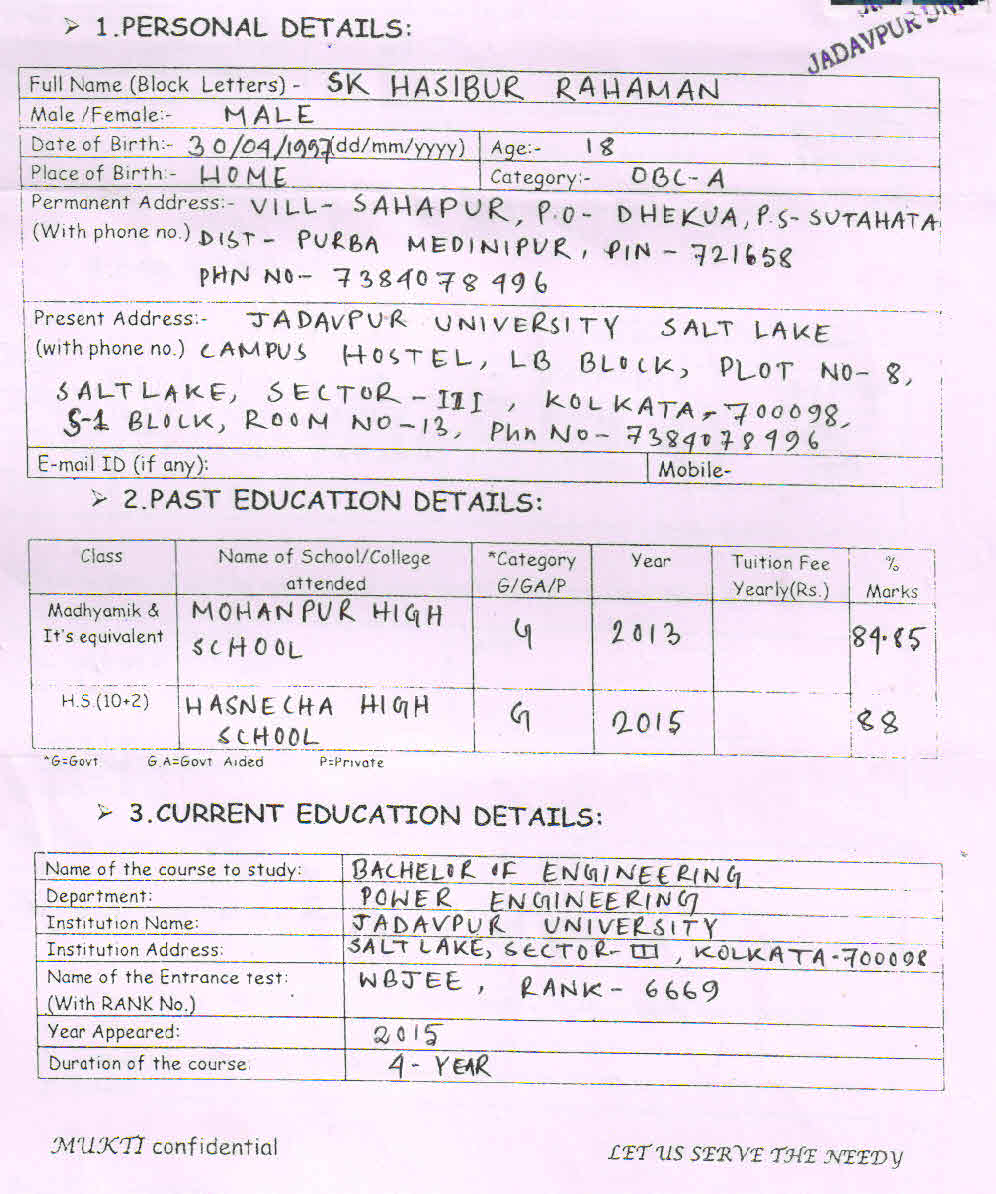 JADAVPUR UNI
➢ 1.PERSONAL DETAILS:
Full Name (Block Letters) - SK HASIBUR RAHAMAN
Male /Female:- MALE
Date of Birth:- 30/04/1997(dd/mm/yyyy) Age:- 18
Place of Birth:- HOME Category:- OBC-A
Permanent Address:- VILL- SAHAPUR, P.O- DHEKUA, P.S- SUTAHATA
(With phone no.) DIST- PURBA MEDINIPUR, PIN - 721658
PHN NO- 7384078496
Present Address:- JADAVPUR UNIVERSITY SALT LAKE
(with phone no.) CAMPUS HOSTEL, LB BLOCK, PLOT NO- 8,
SALTLAKE, SECTOR-III, KOLKATA-700098,
S-1 BLOCK, ROOM NO-13, Phn No- 7384078496
E-mail ID (if any): Mobile-
➢ 2.PAST EDUCATION DETAILS:
Class Name of School/College attended *Category G/GA/P Year Tuition Fee Yearly(Rs.) % Marks
Madhyamik & It's equivalent MOHANPUR HIGH SCHOOL G 2013 84.85
H.S.(10+2) HASNECHA HIGH SCHOOL G 2015 88
*G=Govt G.A=Govt Aided P=Private
➢ 3.CURRENT EDUCATION DETAILS:
Name of the course to study: BACHELOR OF ENGINEERING
Department: POWER ENGINEERING
Institution Name: JADAVPUR UNIVERSITY
Institution Address: SALT LAKE, SECTOR-III, KOLKATA-700098
Name of the Entrance test: WBJEE, RANK- 6669
(With RANK No.)
Year Appeared: 2015
Duration of the course: 4- YEAR
MUKTI confidential LET US SERVE THE NEEDY